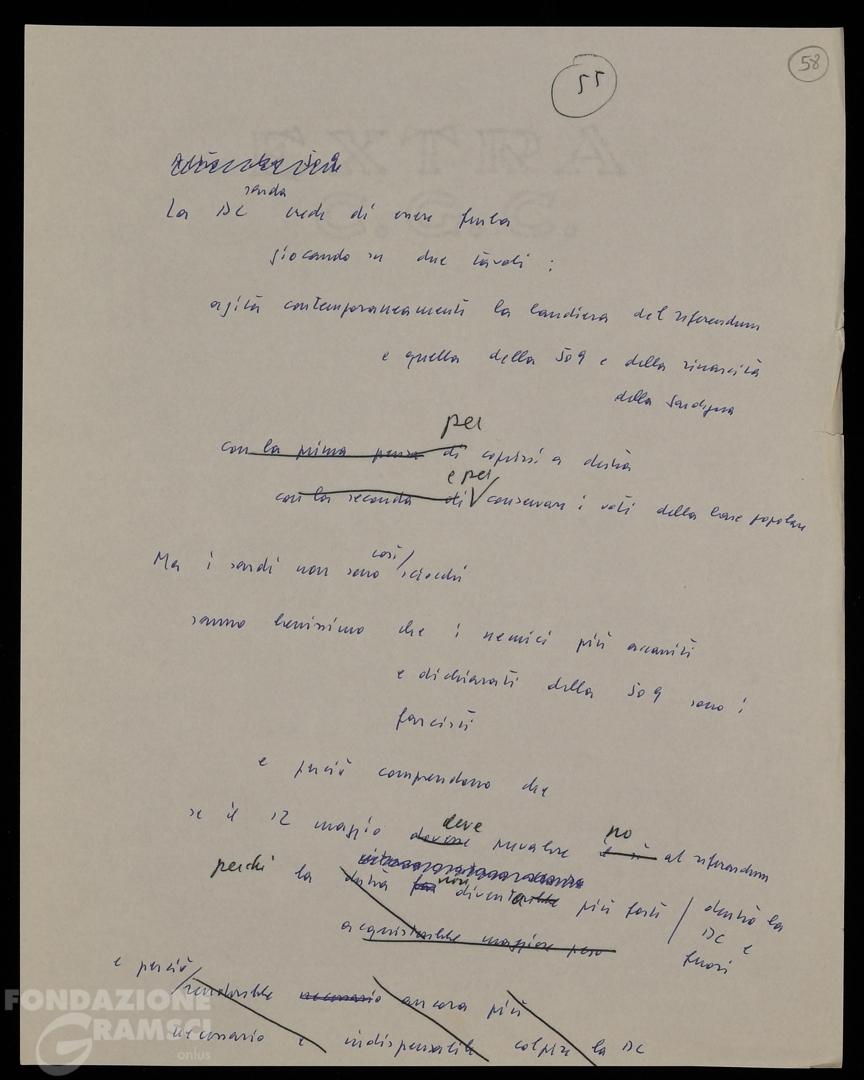 55
58
sarda
La DC crede di essere furba
giocando su due tavoli :
agita contemporaneamente la bandiera del referendum
e quella della 509 e della rinascita
della Sardegna
per
con la prima pensa di coprirsi a destra
e per
con la seconda di conservare i voti della base popolare
così
Ma i sardi non sono sciocchi
sanno benissimo che i nemici più accaniti
e dichiarati della 509 sono i
fascisti
e perciò comprendono che
deve no
se il 12 maggio dovesse prevalere il sì al referendum
perché la destra non diventi più forte / dentro la
DC e
fuori
acquisterebbe maggiore peso
e perciò
renderebbe necessario ancora più
necessario e indispensabile colpire la DC
FONDAZIONE
GRAMSCI
onlus